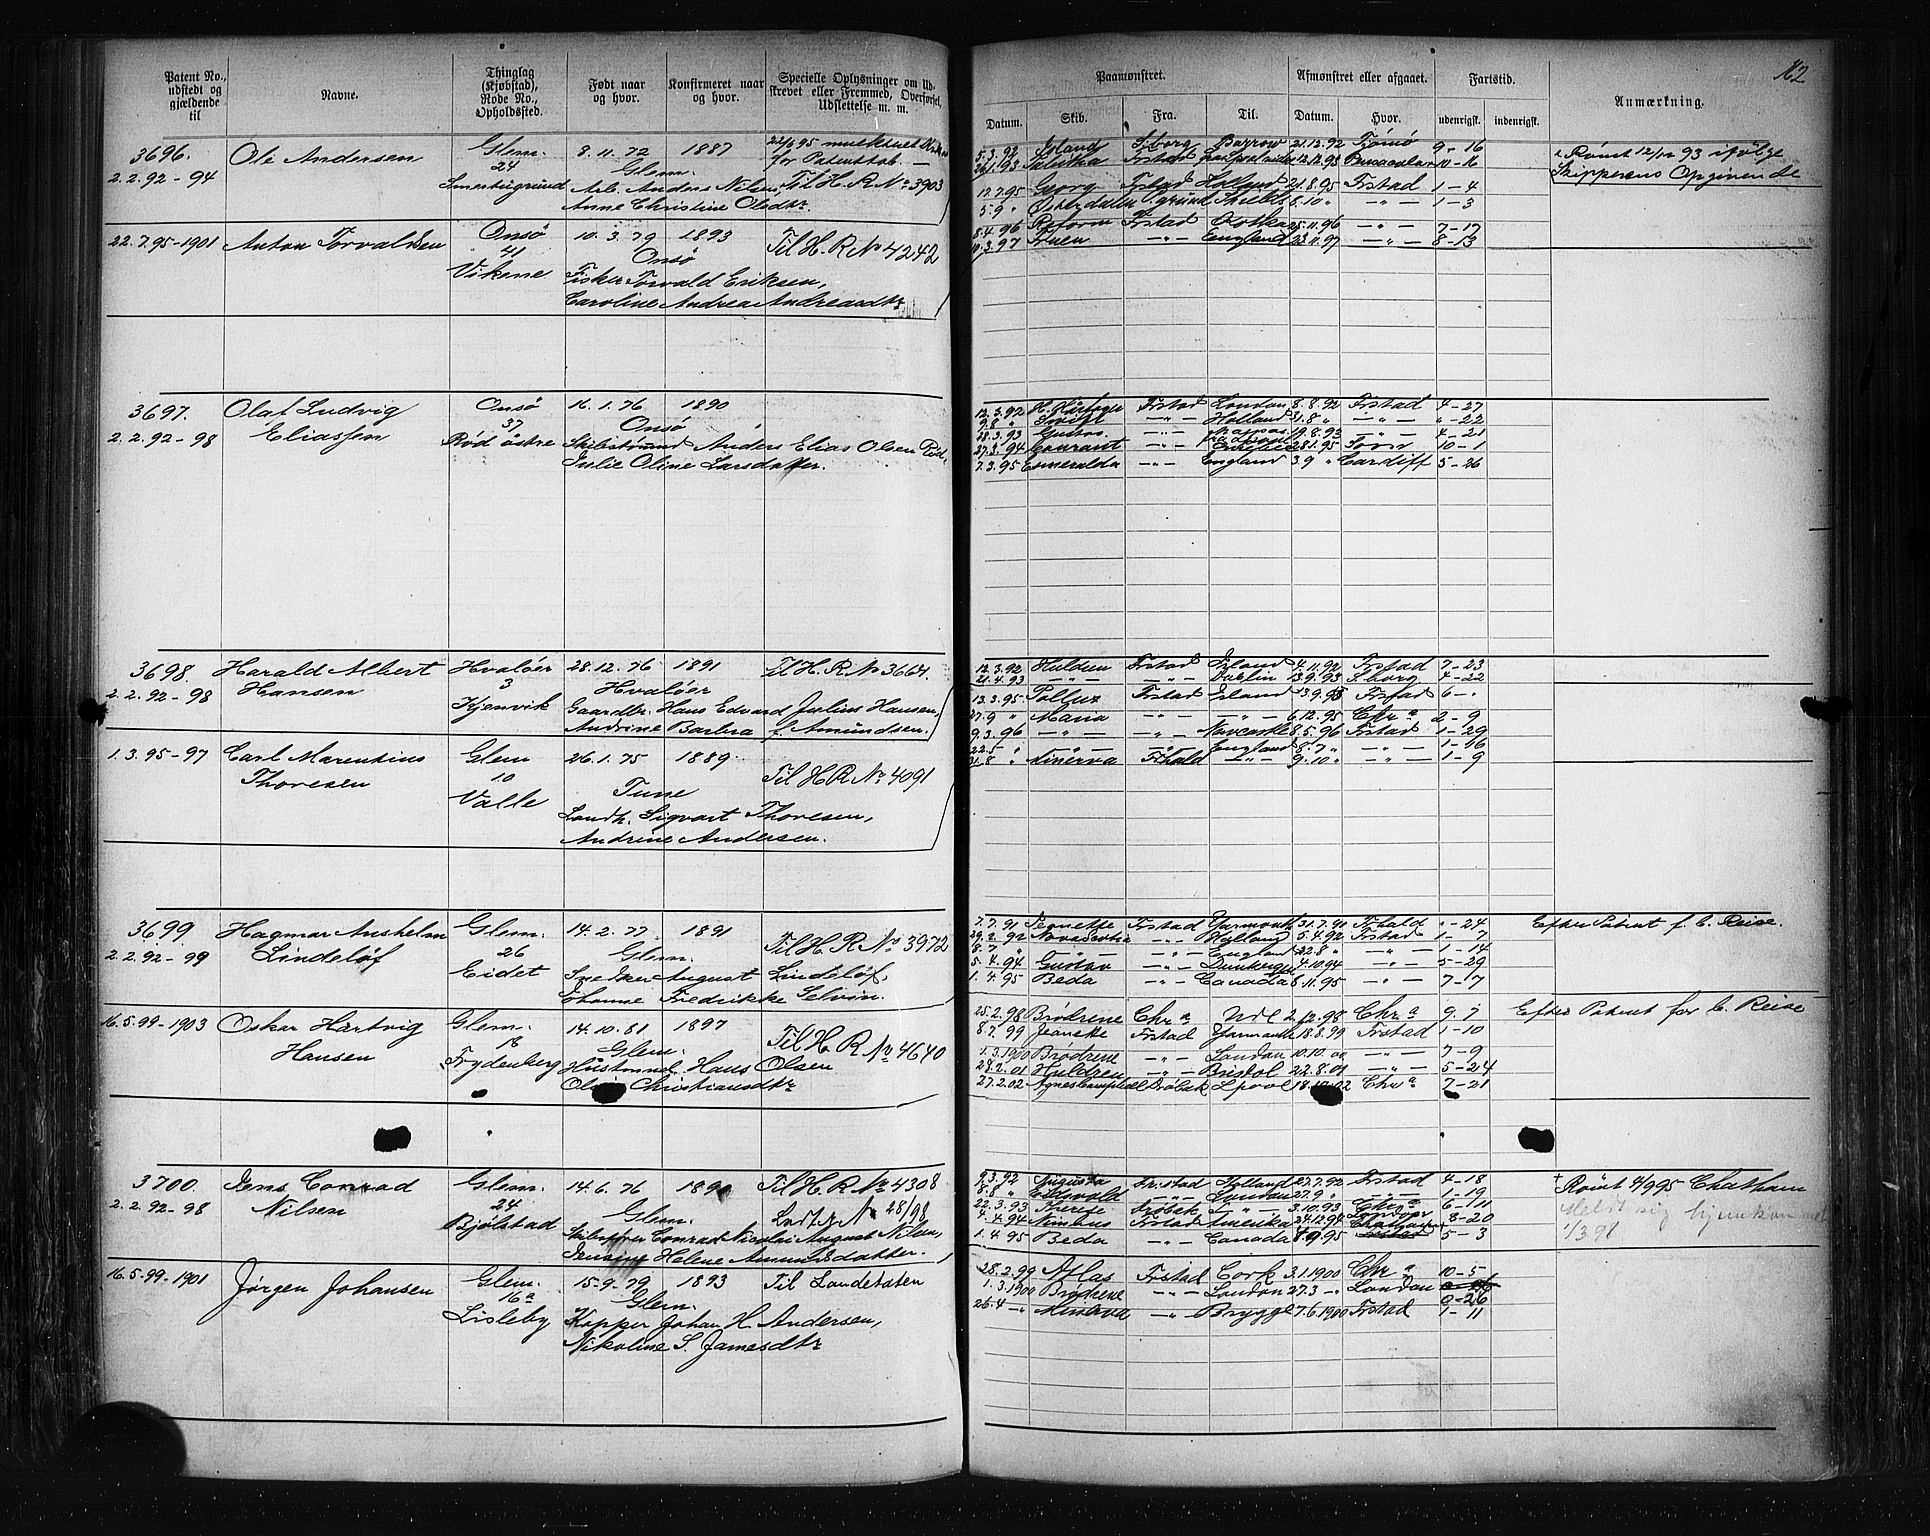 162
Patent No., udstedt og gjældende til
Navne.
Thinglag (Kjøbstad), Rode No., Opholdssted.
Født naar og hvor.
Konfirmeret naar og hvor.
Specielle Oplysninger om Udskrevet eller Fremmed, Overførsel, Udslettelse m. m.
Paamønstret.
Afmønstret eller afgaaet.
Fartstid.
Anmærkning.
Datum.
Skib.
Fra.
Til.
Datum.
Hvor.
udenrigsk.
indenrigsk.
3696.
2.2.92-94
Ole Andersen
Glem.
24
Smertugrund
8.11.72 1887
Glem.
Arb. Anders Nilsen
Anne Christine Olsdtr.
for Patenttab
Til H. R. No 3903
5.3.92 Island Sborg Barrow 21.12.92 Tømø 9-16
12.7.95 Georg Frstad Holland 21.8.95 Frstad 1-4
5.9 " 8.10 " -"- 1-3
Rømt 12/12 93 ifølge
Skipperens Opgivende
22.7.95-1901
Anton Torvaldsen
Onsø
41
Vikene
10.3.79 1893
Onsø
Fisker Torvald Eriksen,
Caroline Andrea Andreasdtr
Til H. R. No 4242
8.4.96 Frstad 25.11.96 -"- 7-17
10.3.97 -"- England 23.11.97 -"- 8-13
3697.
2.2.92-98
Olaf Ludvig
Eliassen
Onsø
37
Rød østre
16.1.76 1890
Onsø
Skibstømmd Anders Elias Olsen Rød,
Julie Oline Larsdatter.
12.3.92 Frstad London 8.8.92 Frstad 4-27
9.8 " Svift -"- Holland 31.8 " -"- "-22
28.3.93 Gustav -"- 19.8.93 -"- 4-21
27.3.94 Courant -"- 28.1.95 10-1
7.3.95 Esmeralda -"- England 3.9 " Cardiff 5-26
3698.
2.2.92-98
Harald Albert
Hansen
Hvaløer
3
Kjenvik
28.12.76 1891
Hvaløer
Gaardbr. Hans Edvard Julius Hansen,
Andrine Barbra f. Amundsen.
Til H. R. No 3664.
12.3.92 Huldren Frstad Island 4.11.92 Frstad 7-23
21.4.93 -"- -"- Dublin 13.9.93 Sborg 4-22
1.3.95-97
Carl Marentius
Thoresen
Glem
10
Valle
26.1.75 1889
Tune
Landh. Sigvart Thoresen,
Andrine Andersen.
Til H. R. No 4091
13.3.95 Pollux Frstad Island 13.9.95 Frstad 6-"
27.9 " Maria -"- -"- 6.12.95 Chr.a 2-9
9.3.96 -"- -"- Newcastle 8.5.96 Frstad 1-29
22.5 " -"- -"- England 8.7 " -"- 1-16
31.8 " Minerva Frhald -"- 9.10 " -"- 1-9
3699.
2.2.92-99
Hagmar Anshelm
Lindeløf
Glem.
26
Eidet
14.2.77 1891
Glem.
Snedker August Lindeløf,
Johanne Fredrikke Selvin.
Til H. R. No 3972
7.7.91 Jeanette Frstad Yarmouth 31.7.91 Frhald "-24
29.2.92 Novascotia -"- Hylland 5.4.92 Frstad 1-7
8.7 " -"- -"- England 22.8 " -"- 1-14
5.4.94 Gustav -"- Dunkerque 4.10.94 -"- 5-29
1.4.95 Beda -"- Canada 8.11.95 -"- 7-7
Efter Patent f. C. Reise.
16.5.99-1903
Oskar Hartvig
Hansen
Glem.
16
Frydenberg
14.10.81 1897
Glem.
Husmand Hans Olsen
Christiansdtr
Til H. R. No 4640
25.2.98 Brødrene Chr.a 2.12.98 Chr.a 9.7
8.7.99 Jeanette Frstad Yarmouth 18.8.99 Frstad 1-10
1.3.1900 Brødrene -"- London 10.10.00 -"- 7-9
28.2.01 Huldren -"- Bristol 22.8.01 -"- 5-24
27.2.02 Agnes Campbell Drøbak Lpool 18.10.02 Chr.a 7-21
Efter Patent for C. Reise
3700.
2.2.92-98
Jens Conrad
Nilsen
Glem.
24
Bjølstad
14.6.76 1890
Glem.
Skibsfører Conrad Nicolai August Nilsen,
Jensine Helene Amundsdatter.
Til H. R. No 4308
Lodt. No 28/98
9.3.92 Augusta Fr.stad Holland 27.7.92 Frstad 4-18
8.8 " Eidsvold -"- London 27.9 " -"- 1-19
22.3.93 Therese Drøbak -"- 3.10.93 Chr.a 6-11
1.4.94 Nimbus Frstad Amerika 24.12.94 London 8-20
Chatham
1.4.95 Beda -"- Canada 8.9.95 Frstad 5-3
Rømt 4/9 95 Chatham
Meldt sig hjemkommet
1/3 98
16.5.99-1901
Jørgen Johansen
Glem.
16a
Lisleby
15.9.79 1893
Glem.
Kopper Johan H. Andersen,
Nikoline S. Jamesdtr
Til Landetaten
28.2.99 Atlas Frstad Cork 3.1.1900 Chr.a 10-5
1.3.1900 Brødrene -"- London 27.3 -"- London
0-26
26.4 -"- Minerva -"- Brygge 7.6.1900 Frstad 1-11